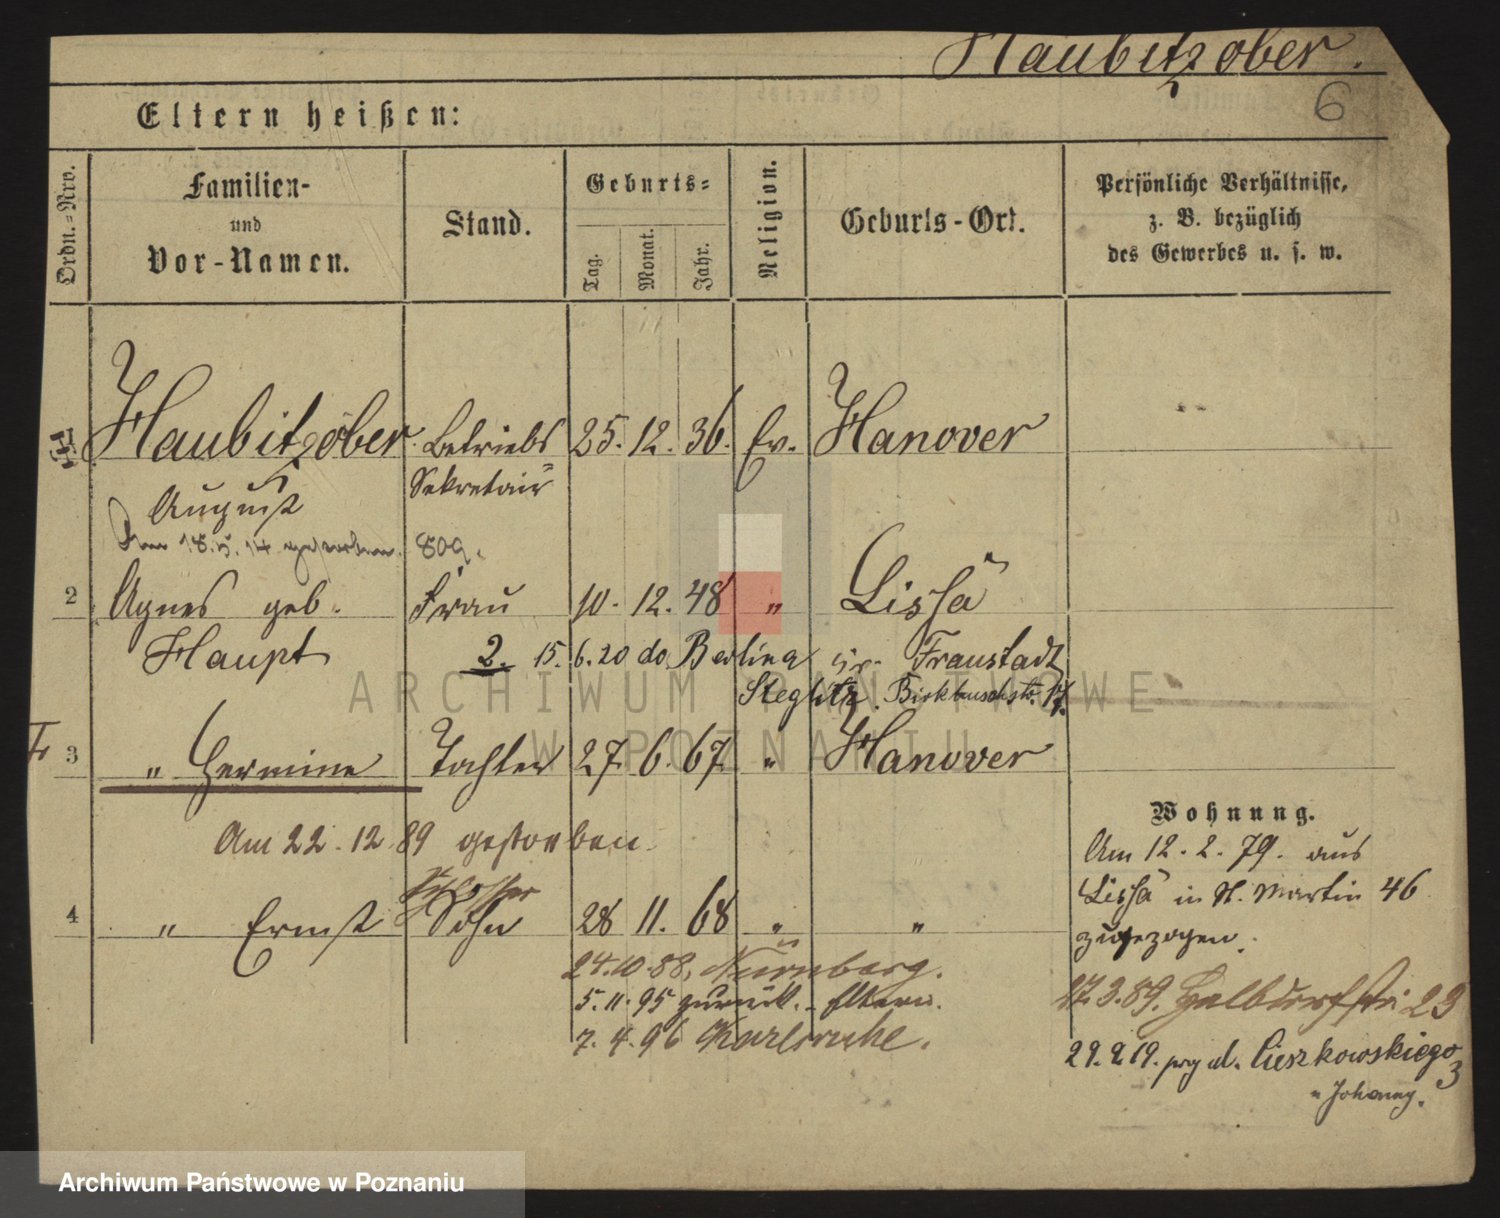 Haubitzober.
6
Eltern heißen:
Ordn.=Nro.
Familien- und Vor-Namen.
Stand.
Geburts=
Tag.
Monat.
Jahr.
Religion.
Geburts-Ort.
Persönliche Verhältnisse,
z. B. bezüglich
des Gewerbes u. s. w.
1 Haubitzober Betriebs 25. 12. 36. Ev. Hanover
August Sekretair
Am 18. 5. 14 gestorben. 809.
2 Agnes geb. Frau 10. 12. 48 " Lissa
Haupt
2. 15. 6. 20 do Berlina Fraustadt
Steglitz. Birkbuschstr. 17.
Fr 3 " Hermine Tochter 27. 6. 67. " Hanover
Am 22. 12. 89 gestorben.
Schlosser
4 " Ernst Sohn 28 11. 68 " "
24. 10. 88. Nürnberg.
5. 11. 95 zurück. - Eltern.
7. 4. 96 Karlsruhe.
Wohnung.
Am 12. 2. 79. aus
Lissa in St. Martin 46
zugezogen.
17. 3. 89. Halbdorfstr. 29
29. 9. 19. przy ul. Cieszkowskiego
3
" Johanny.
ARCHIWUM PAŃSTWOWE
W POZNANIU
Archiwum Państwowe w Poznaniu